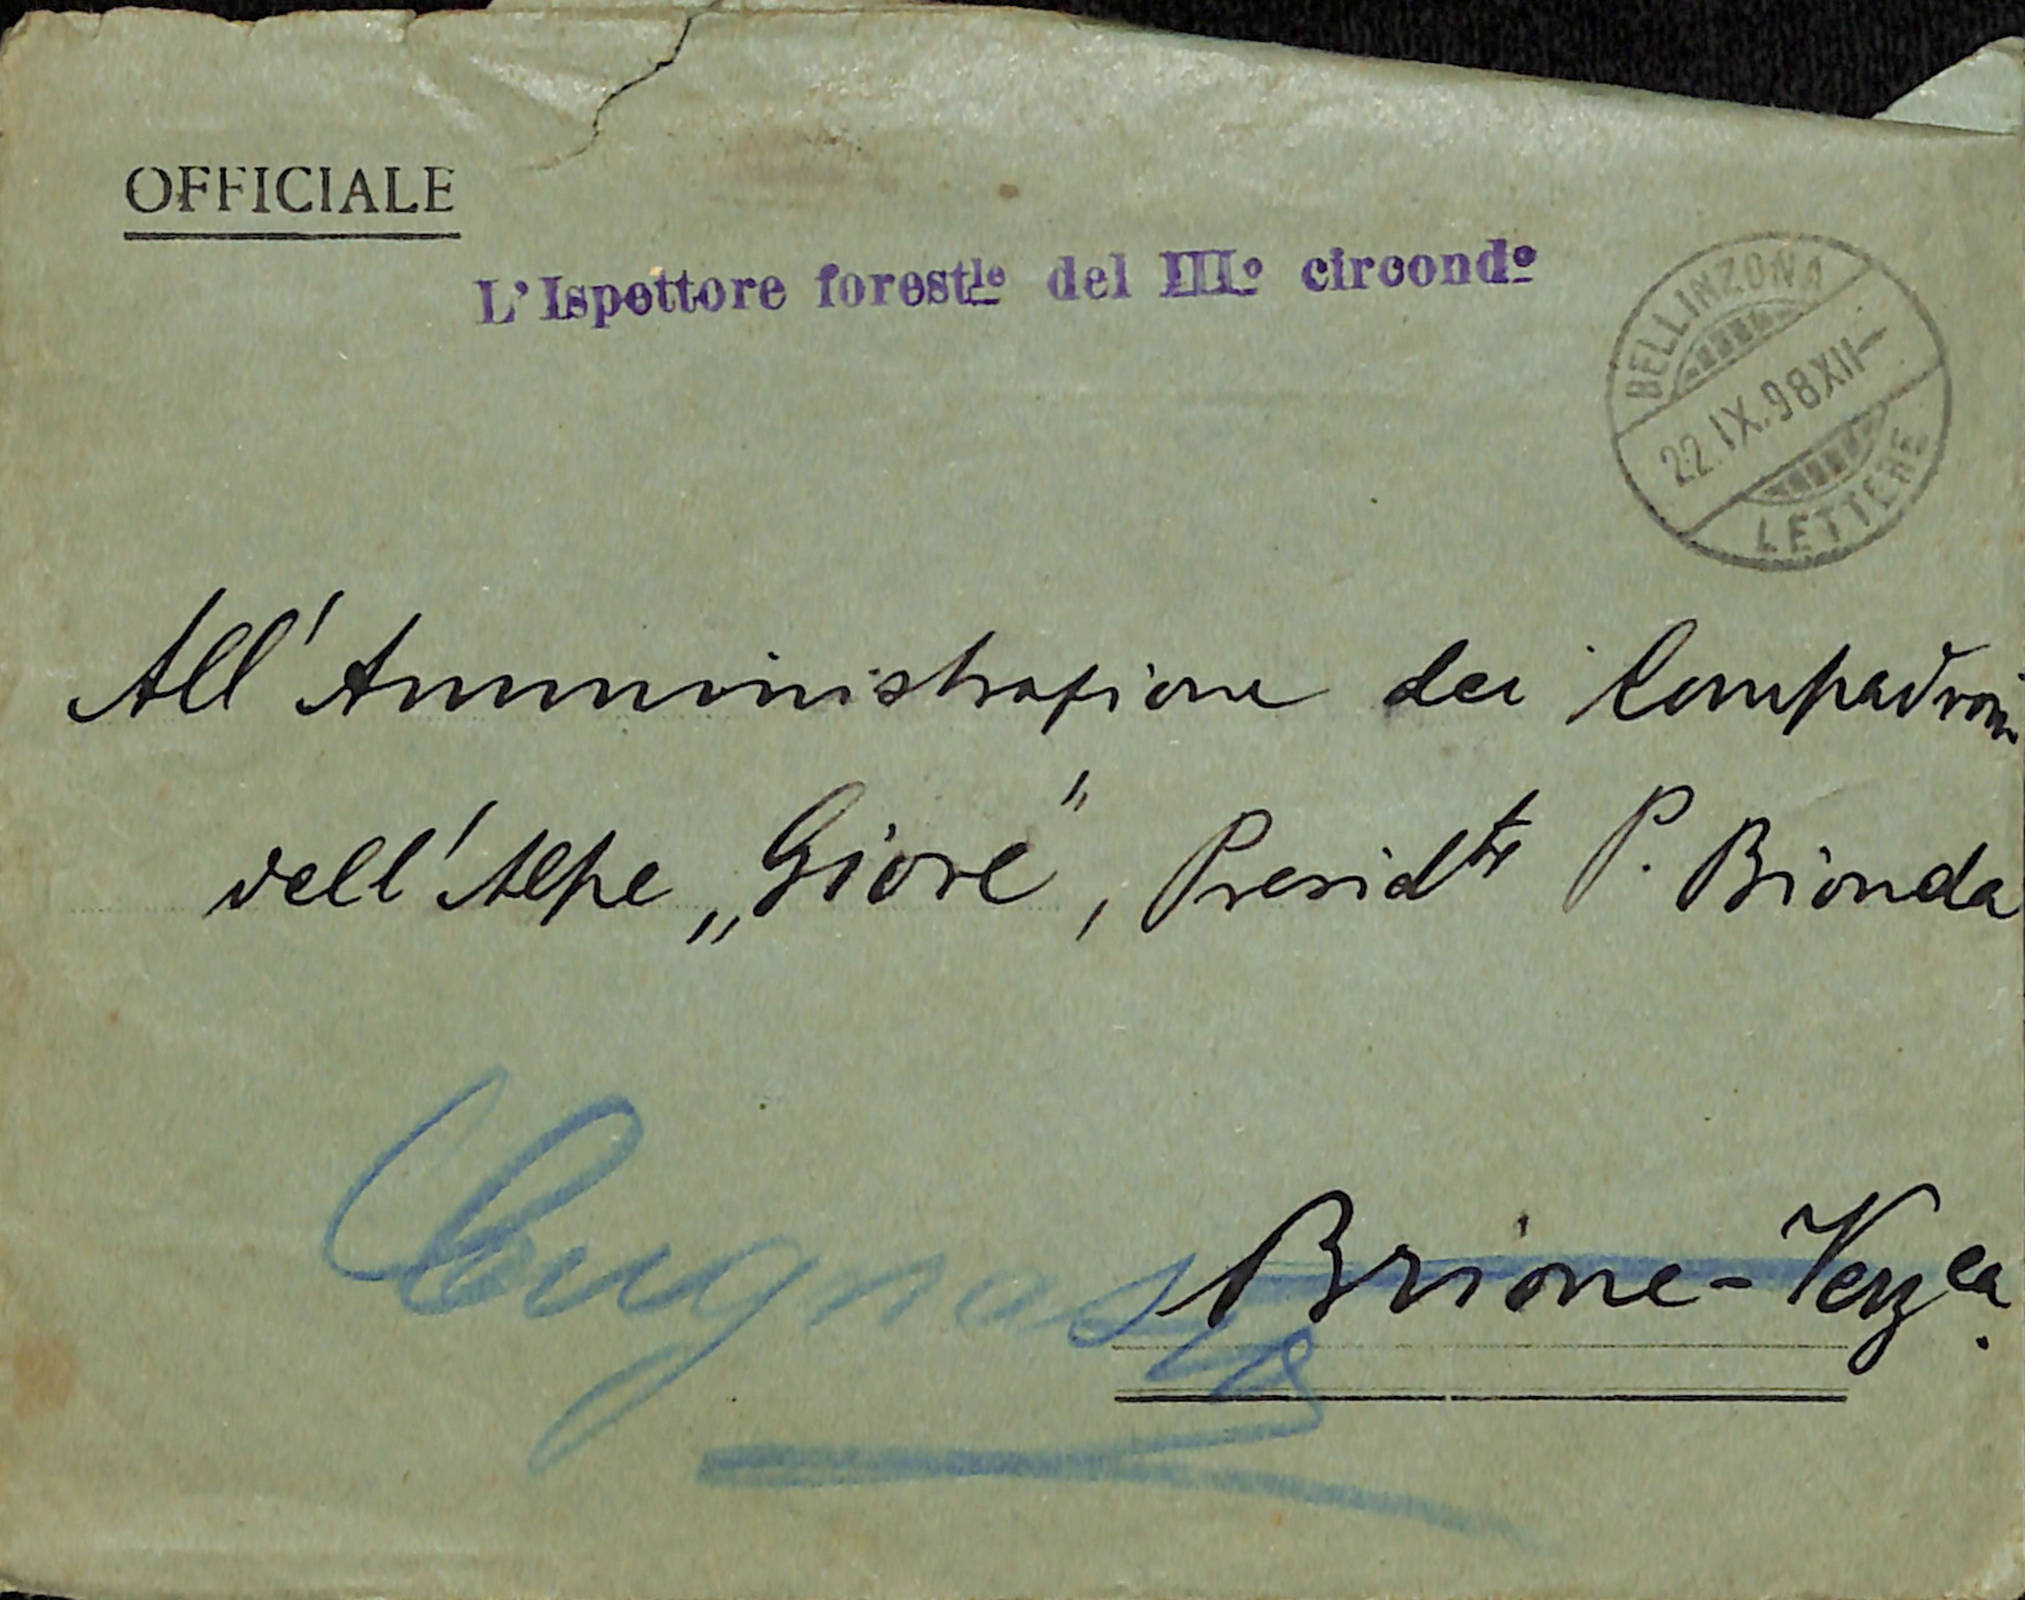 OFFICIALE
L'Ispettore forestle del IIIo circondo
BELLINZONA
22.IX.98 XII—
LETTERE
All'Amministrazione dei Compadroni
dell'Alpe „Giove", Presidte P. Bionda
Brione-Verzca.
Cugnasco